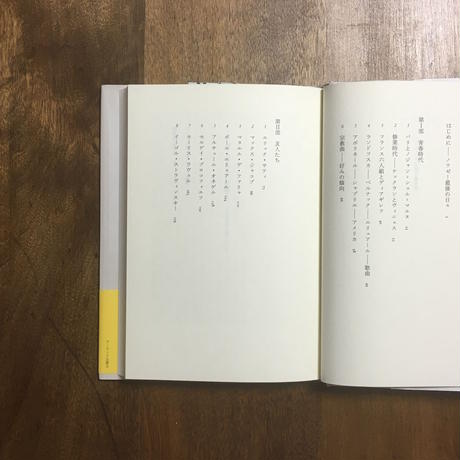 はじめに——ノワゼー最後の日々
第Ⅰ部 青春時代
1 パリとノジャン=シュル=マルヌ
2 修業時代——ケックランとヴィニェス
3 フランス六人組とディアギレフ
4 ランドフスカ——ベルナック——エリュアール——歌曲
5 アポリネール——シャブリエ——アメリカ
6 宗教曲——好みの傾向
第Ⅱ部 友人たち
1 エリック・サティ
2 マックス・ジャコブ
3 マヌエル・デ・ファリャ
4 ポール・エリュアール
5 アルチュール・オネゲル
6 セルゲイ・プロコフィエフ
7 モーリス・ラヴェル
8 イーゴリ・ストラヴィンスキー